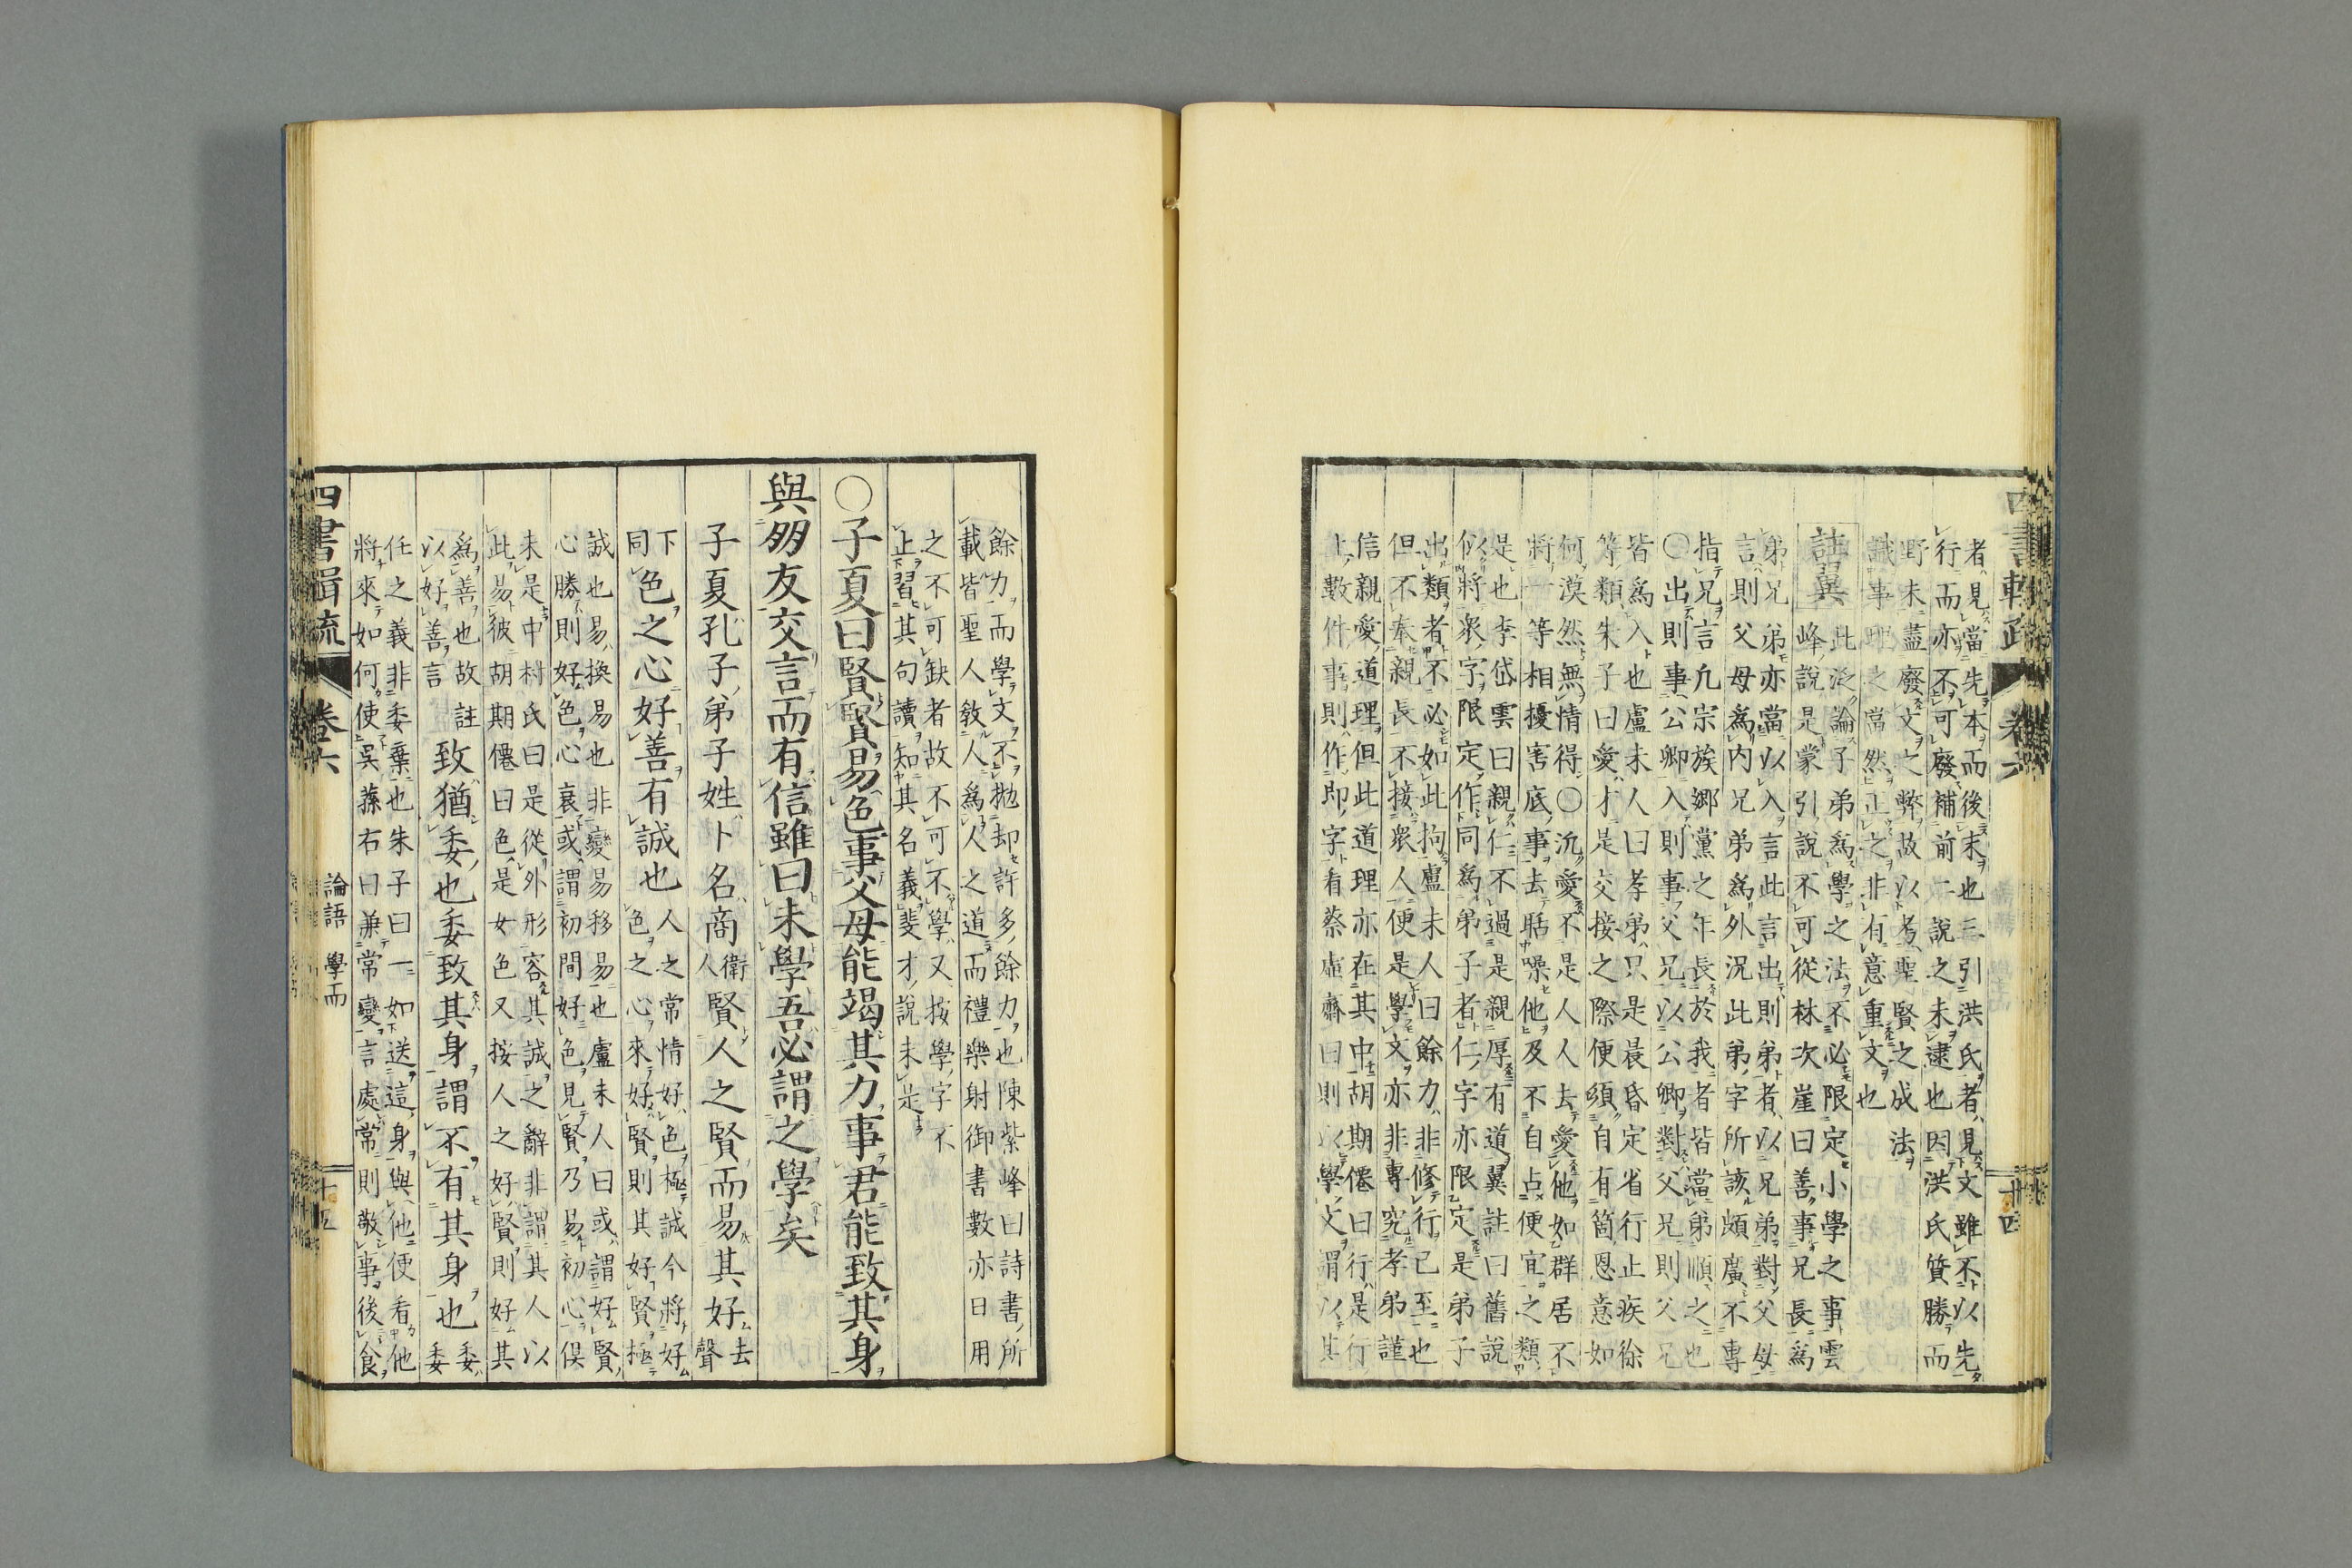 者見當先本而後末也三引洪氏者見文雖不以先
行而亦不可廢補前二說之未逮也因洪氏質勝而
野未盡廢文之弊故以考聖賢之成法
識事理之當然正之非有意重文也
詁翼 此泛論子弟爲學之法不必限定小學之事雲
峰說是蒙引說不可從林次崖曰善事兄長爲
弟兄弟亦當以入言此言出則弟者以兄弟對父母
言則父母爲內兄弟爲外況此弟字所該頗廣不專
指兄言凡宗族鄉黨之年長於我者皆當弟順之也
○出則事公卿入則事父兄以公卿對父兄則父兄
皆爲入也盧未人曰孝弟只是晨昏定省行止疾徐
等類朱子曰愛才是交接之際便須自有箇恩意如
何漠然無情得○汎愛不是人人去愛他如群居不
將一等相擾害底事去聒噪他及不自占便宜之類
是也李岱雲曰親仁不過是親厚有道翼註曰舊說
似將衆字限定作同爲弟子者仁字亦限定是弟子
出類者不必如此拘盧未人曰餘力非修行已至也
但不奉親長不接衆人便是學文亦非專究孝弟謹
信親愛道理但此道理亦在其中胡期僊曰行是行
上數件事則作即字看蔡虛齋曰則以學文謂以其
四書輯疏 卷六 十四
餘力而學文不拋却許多餘力也陳紫峰曰詩書所
載皆聖人敎人爲人之道而禮樂射御書數亦日用
之不可缺者故不可不學又按學字不
止習其句讀知其名義斐才說未是
○子夏曰賢賢易色事父母能竭其力事君能致其身
與朋友交言而有信雖曰未學吾必謂之學矣
子夏孔子弟子姓卜名商衛人賢人之賢而易其好去聲
下同色之心好善有誠也人之常情好色極誠今將好
色之心來好賢則其好賢極
誠也易換易也非變易移易也盧未人曰或謂好賢
心勝則好色心衰或謂初間好色見賢乃易初心俱
未是中村氏曰是從外形容其誠之辭非謂其人以
此易彼胡期僊曰色是女色又按人之好賢則好其
爲善也故註
以好善言 致猶委也委致其身謂不有其身也委
任之義非委棄也朱子曰一如送這身與他便看他
將來如何使吳蓀右曰兼常變言處常則敬事後食
四書輯疏 卷六 論語 學而 十五